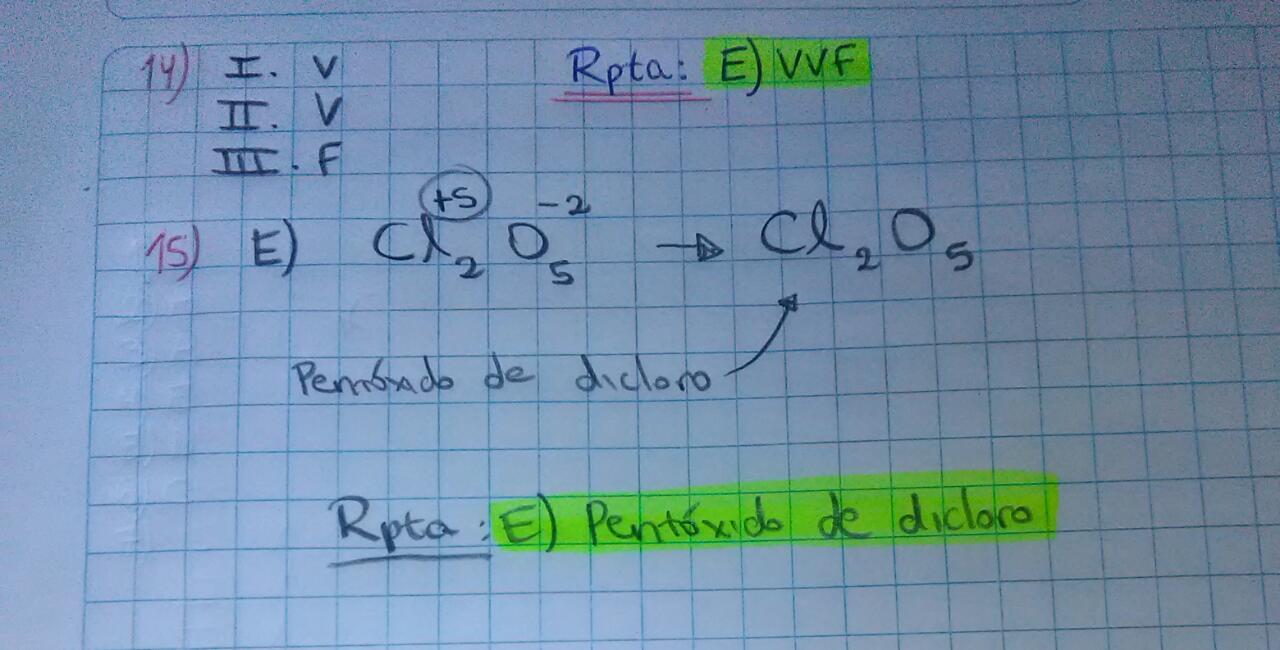 14) I. V Rpta: E) VVF
II. V
III. F
15) E) Cl₂⁺⁵ O₅⁻² → Cl₂O₅
Pentóxido de dicloro
Rpta: E) Pentóxido de dicloro